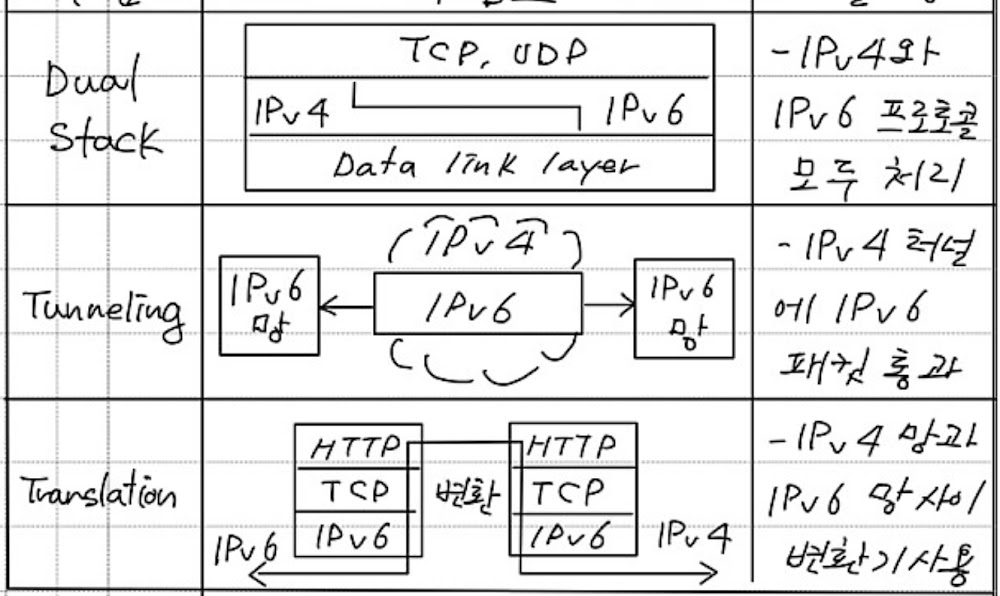 Dual
Stack
TCP, UDP
IPv4
IPv6
Data link layer
-IPv4와
IPv6 프로토콜
모두 처리
Tunneling
IPv6
망
IPv4
IPv6
IPv6
망
-IPv4 터널
에 IPv6
패킷 통과
Translation
HTTP
TCP
IPv6
변환
HTTP
TCP
IPv6
IPv6
IPv4
-IPv4 망과
IPv6 망 사이
변환기 사용